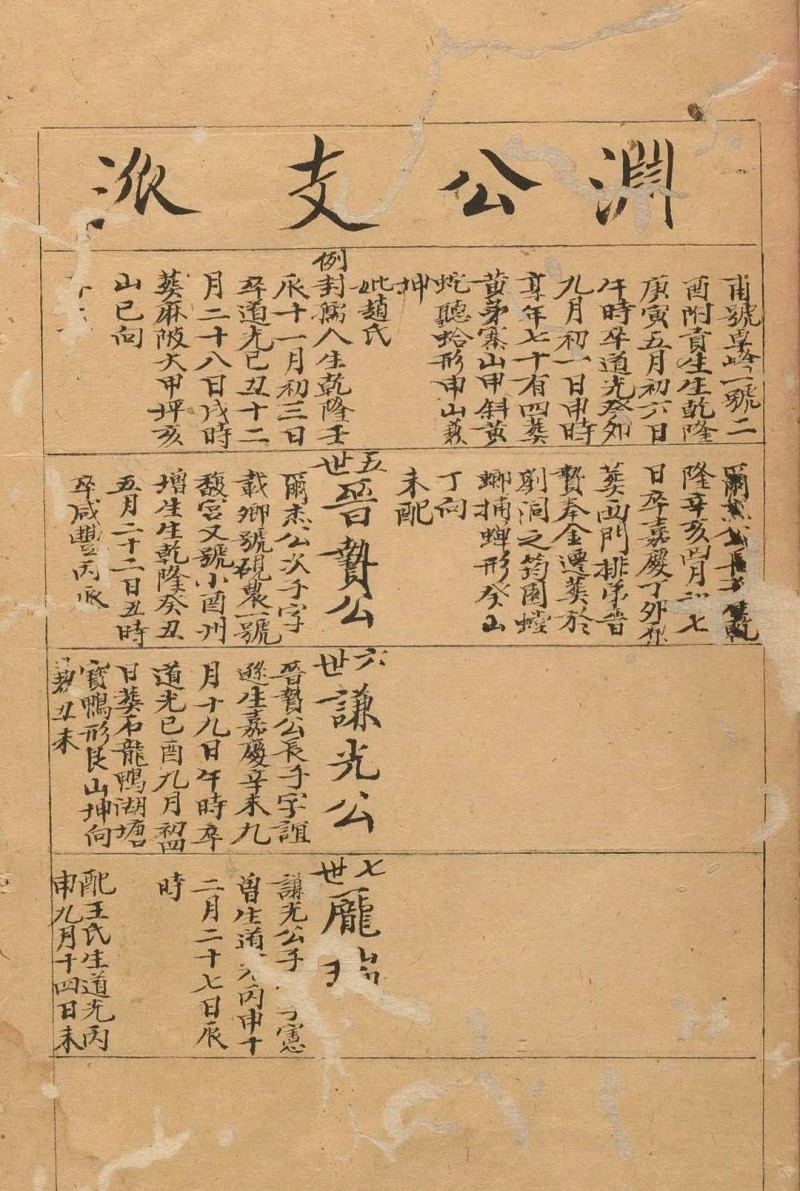 淵公支派
甫號卓峰一號二
酉附貢生生乾隆
庚寅五月初六日
午時卒道光癸卯
九月初一日申時
享年七十有四葬
黃茅寨山甲斜黃
蛇聽蛤形申山兼
坤
妣趙氏
例封孺人生乾隆壬
辰十一月初三日
卒道光己丑十二
月二十八日戌時
葬麻陂大甲坪亥
山巳向
隆辛亥 月 七
日卒嘉慶丁卯
葬西門排 晉
贄奉金遷葬於
洞之筠園螳
螂捕蟬形癸山
丁向
未配
五世
晉贄公
爾杰公次子字
載卿號硯農一號
馥宮又號小酉州
增生生乾隆癸丑
五月二十二日丑時
卒咸豐丙辰
六世
謙光公
晉贄公長子字誼
遜生嘉慶辛未九
月十九日午時卒
道光己酉九月初四
日葬石龍鴨湖塘
寶鴨形艮山坤向
兼丑未
七世
龐瑞
謙光公子 字憲
曾生道光丙申十
二月二十七日辰
時
配王氏生道光丙
申九月十四日未